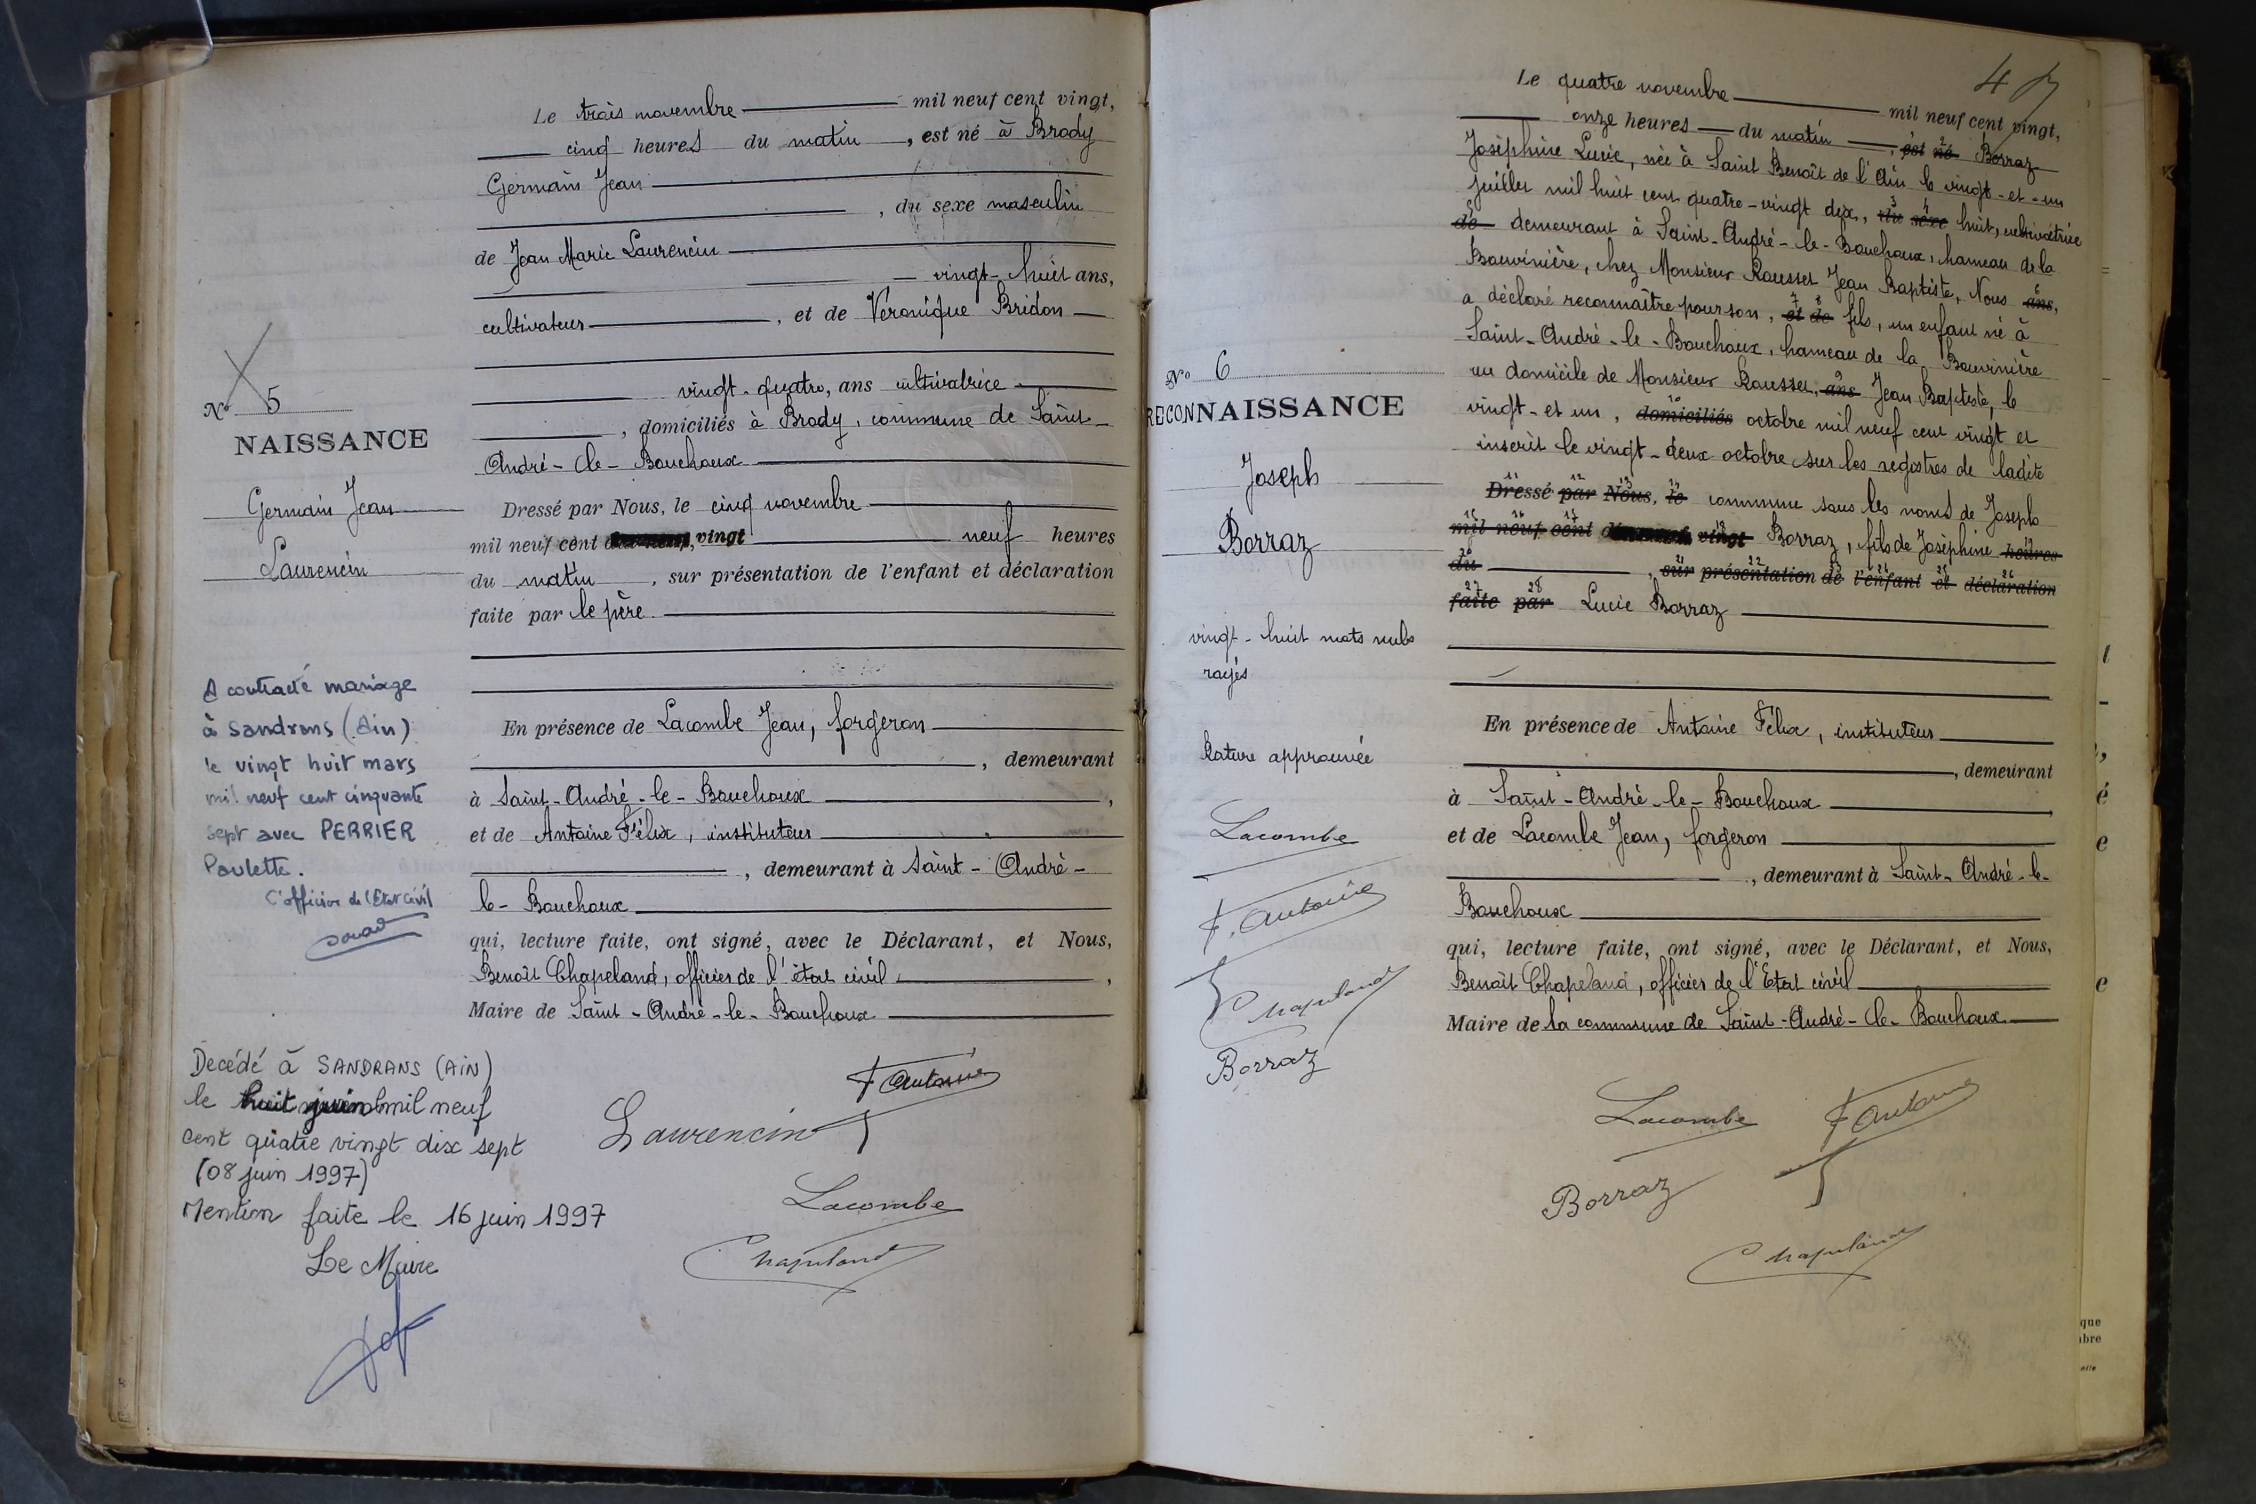 Le trois novembre mil neuf cent vingt,
cinq heures du matin, est né à Brody
Germain Jean
, du sexe masculin
de Jean Marie Laurencin
vingt-huit ans,
cultivateur, et de Véronique Bridon
vingt-quatre, ans cultivatrice
, domiciliés à Brody, commune de Saint-
André-le-Bouchoux
Dressé par Nous, le cinq novembre
mil neuf cent vingt neuf heures
du matin, sur présentation de l'enfant et déclaration
faite par le père
En présence de Lacombe Jean, forgeron
, demeurant
à Saint-André-le-Bouchoux,
et de Antoine Félix, instituteur
, demeurant à Saint-André-
le-Bouchoux
qui, lecture faite, ont signé, avec le Déclarant, et Nous,
Benoît Chapeland, officier de l'état civil,
Maire de Saint-André-le-Bouchoux
F Antoine
Laurencin
Lacombe
Chapeland
No 5
NAISSANCE
Germain Jean
Laurencin
A contracté mariage
à Sandrans (Ain)
le vingt huit mars
mil neuf cent cinquante
sept avec PERRIER
Paulette.
L'officier de l'Etat civil
Décédé à SANDRANS (AIN)
le huit juin mil neuf
cent quatre vingt dix sept
(08 juin 1997)
Mention faite le 16 juin 1997
Le Maire
47
Le quatre novembre mil neuf cent vingt,
onze heures du matin, est né Borraz
Joséphine Lucie, née à Saint Benoît de l'Ain le vingt-et-un
juillet mil huit cent quatre-vingt dix, du sexe huit, cultivatrice
de demeurant à Saint-André-le-Bouchoux, hameau de la
Bouvinière, chez Monsieur Rousset Jean Baptiste, Nous ans,
a déclaré reconnaître pour son, et de fils, un enfant né à
Saint-André-le-Bouchoux, hameau de la Bouvinière
au domicile de Monsieur Rousset, ans Jean Baptiste, le
vingt-et un, domiciliés octobre mil neuf cent vingt et
inscrit le vingt-deux octobre sur les registres de ladite
Dressé par Nous, le commune sous les noms de Joseph
mil neuf cent vingt Borraz, fils de Joséphine heures
du, sur présentation de l'enfant et déclaration
faite par Lucie Borraz
En présence de Antoine Félix, instituteur
, demeurant
à Saint-André-le-Bouchoux
et de Lacombe Jean, forgeron
, demeurant à Saint-André-le-
Bouchoux
qui, lecture faite, ont signé, avec le Déclarant, et Nous,
Benoît Chapeland, officier de l'Etat civil
Maire de la commune de Saint-André-le-Bouchoux
Lacombe
F Antoine
Borraz
Chapeland
No 6
RECONNAISSANCE
Joseph
Borraz
vingt-huit mots nuls
rayés
Rature approuvée
Lacombe
F. Antoine
Chapeland
Borraz